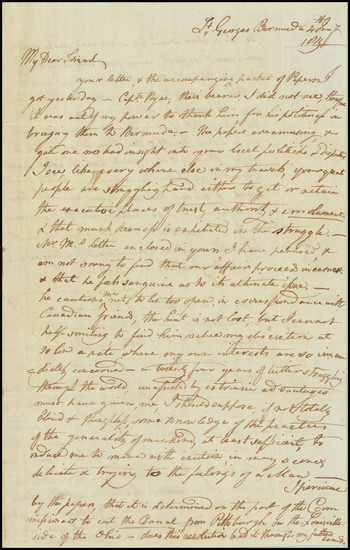 St Georges Bermuda 4th Jany
My Dear Friend
your letter & the accompanying packet of Papers I
got yesterday — Captn Pyne, their bearer, I did not see
it was out of my power to thank him for his politeness in
bringing them to Bermuda — The papers are amusing, &
give one no bad insight into your local politicks & disputes
I see like every where else in my travels, your great
people are struggling hard either to get or retain
the executive places of trust, authority & emolument,
& that much keenness is exhibited in the struggle —
Mr M's letter enclosed in yours I have perused, &
am not sorry to find that our affair proceeds
& that he feels sanguine as to its ultimate issue —
he cautions me not to be too open in correspondence with
Canadian friend, the hint is not lost, but I cannot
help smiling to find him value my discretion at
so low a rate where my own interests are so imme-
diately concerned — twenty five years of bitter struggling
through the world, unassisted by extrinsic advantages
must have given me, I should suppose, if not totally
blind & thoughtless, some knowledge of the practices
of the generality of mankind, at least sufficient, to
induce me to move with caution in many scenes
delicate & trying to the feelings of a Man
I perceive
by the papers, that it is determined on the part of the Com
missioners to cut the Canal from Pittsburgh on the
side of the Ohio — does this resolution lead it through my
land